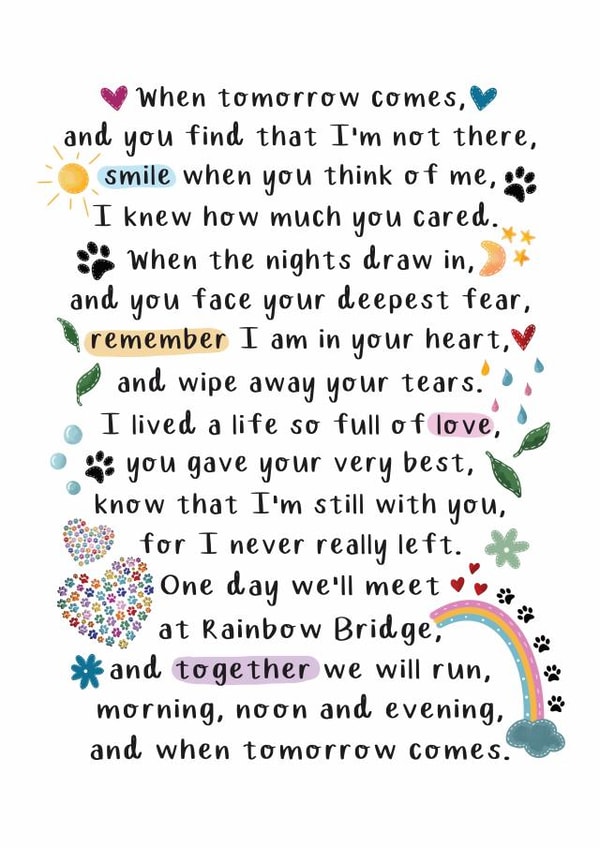 When tomorrow comes,
and you find that I'm not there,
smile when you think of me,
I knew how much you cared.
When the nights draw in,
and you face your deepest fear,
remember I am in your heart,
and wipe away your tears.
I lived a life so full of love,
you gave your very best,
know that I'm still with you,
for I never really left.
One day we'll meet
at Rainbow Bridge,
and together we will run,
morning, noon and evening,
and when tomorrow comes.